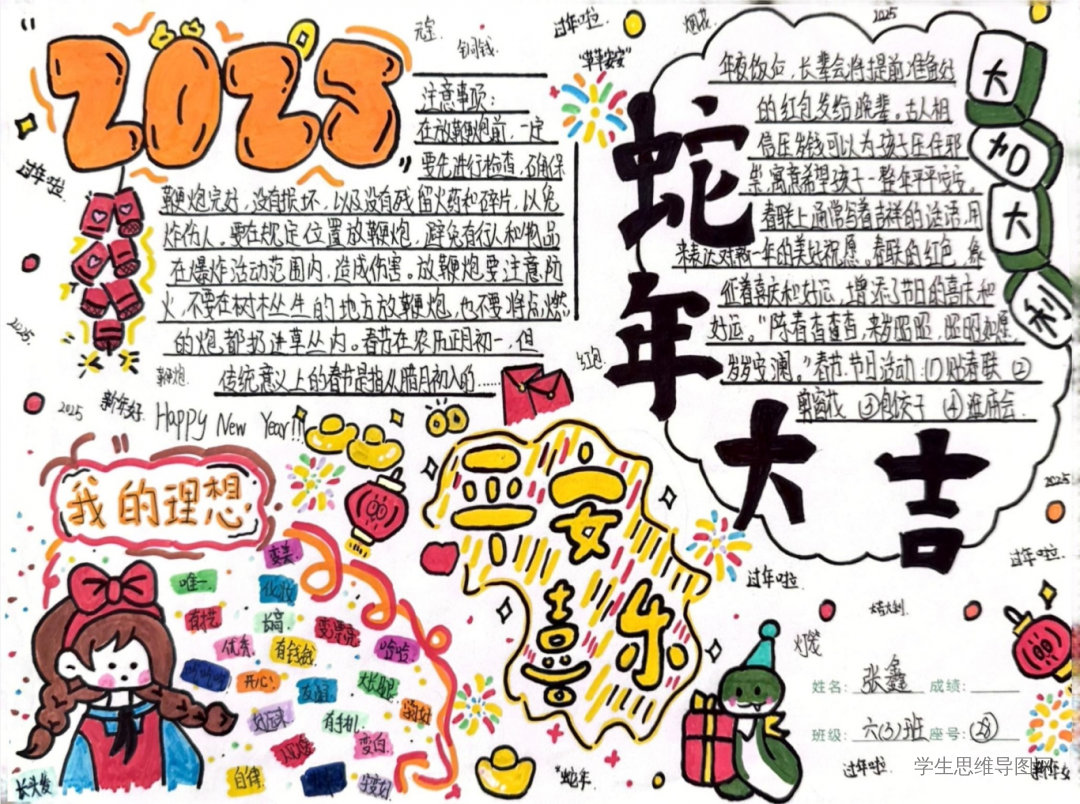 2025
元宝
铜钱
过年啦
烟花
2025
"平平安安"
注意事项:
在放鞭炮前,一定
要先进行检查,确保
鞭炮完好,没有损坏,以及没有残留火药和碎片,以免
炸伤人。要在规定位置放鞭炮,避免有行人和物品
在爆炸活动范围内,造成伤害。放鞭炮要注意防
火,不要在树木丛生的地方放鞭炮,也不要将点燃
的炮都扔进草丛内。春节在农历正月初一,但
传统意义上的春节是指从腊月初八的......
蛇年大吉
年夜饭后,长辈会将提前准备好
的红包发给晚辈。古人相
信压岁钱可以为孩子压住邪
祟,寓意希望孩子一整年平平安安。
春联上通常写着吉祥的话语,用
来表达对新一年的美好祝愿。春联的红色,象
征着喜庆和好运,增添了节日的喜庆和
好运。"陈春杳杳,来岁昭昭,昭昭如愿,
岁岁安澜。"春节节日活动:①贴春联 ②
剪窗花 ③包饺子 ④逛庙会.
大
加
大
利
过年啦
2025
鞭炮
红包
2025
新年好.
Happy New Year!!!
我的理想
变美
唯一
化妆
长高
变漂亮
优秀.
有钱钱
哈哈.
开心.
大长腿
有手机.
变白.
自律
长头发
平安喜乐
蛇年
2025
过年啦
过年啦
灯笼
姓名: 张鑫 成绩:
班级: 六(3)班 座号: 28
过年啦
学生思维导图网